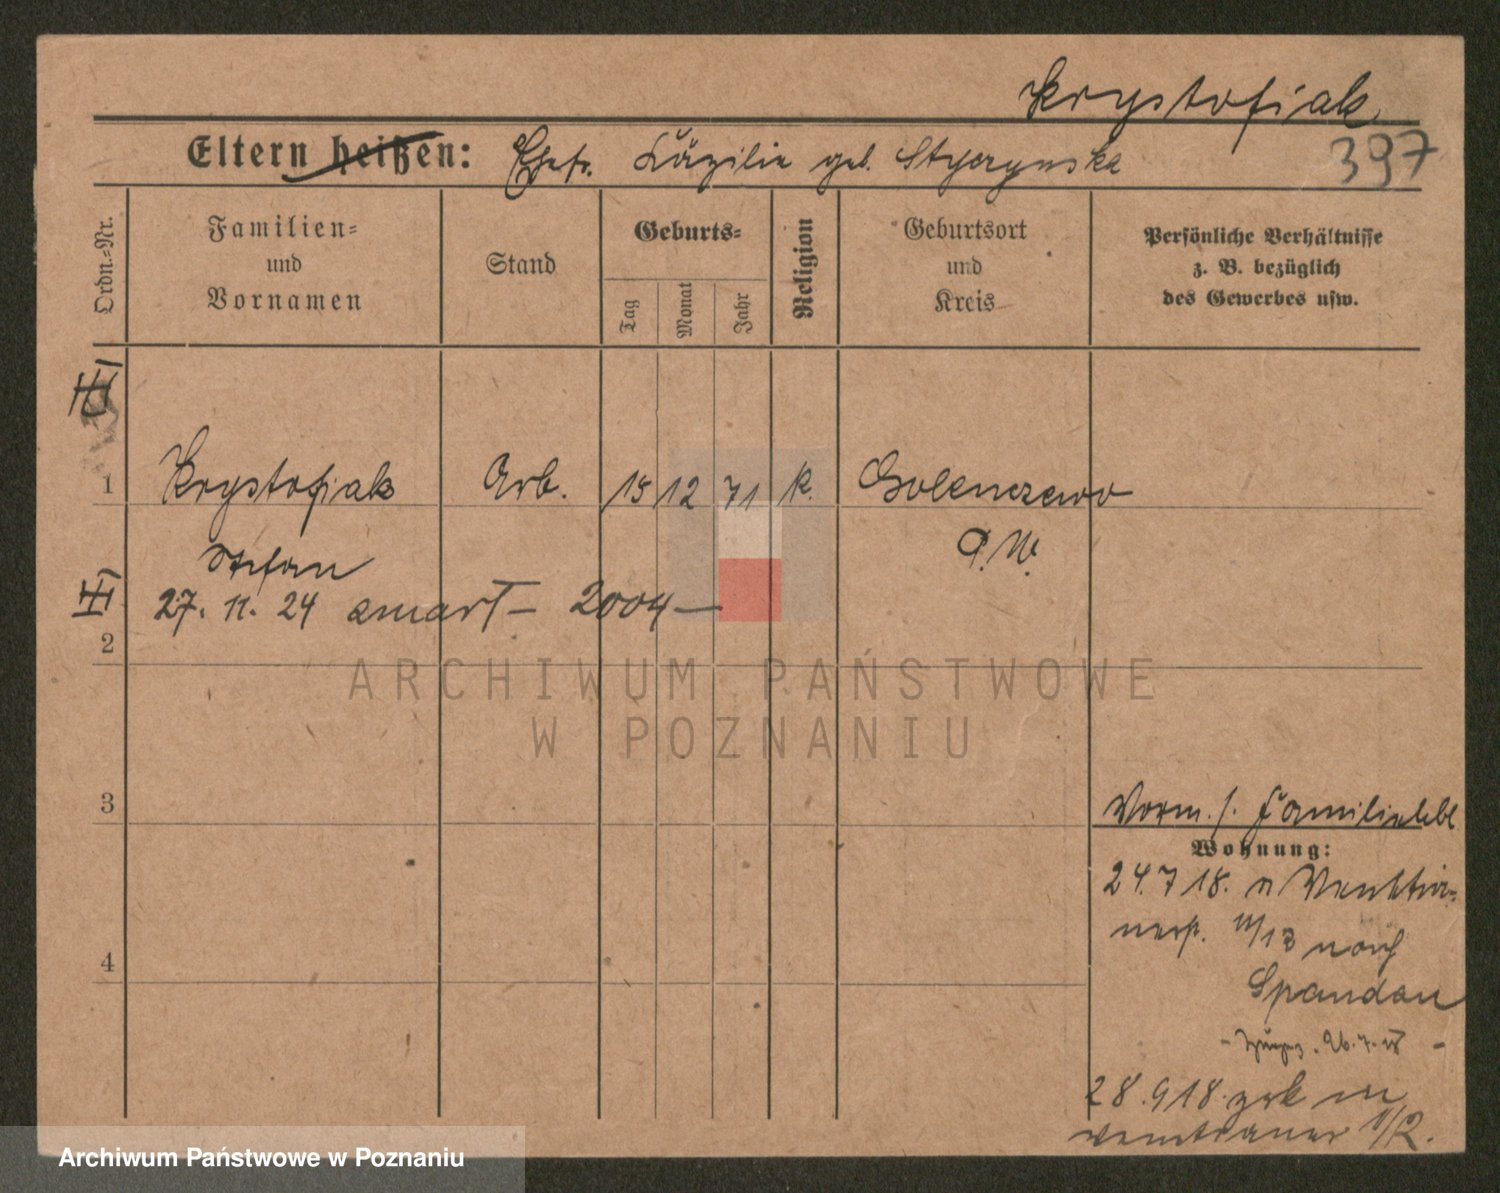 Krystofiak
Eltern heißen: Ehefr. Cäzilie geb. Styczynska
397
Ordn.-Nr.
Familien-
und
Vornamen
Stand
Geburts-
Tag
Monat
Jahr
Religion
Geburtsort
und
Kreis
Persönliche Verhältnisse
z. B. bezüglich
des Gewerbes usw.
1 Krystofiak Arb. 15 12 71 k. Golenczewo
Stefan P. W.
27. 11. 24 zmarł – 2004 –
2
ARCHIWUM PAŃSTWOWE
W POZNANIU
3
Vorm. s. Familienbl
Wohnung:
24.7 18. n
nerstr. 11/13 nach
Spandau
26.7.18
28.9 18. zrk in
11/2.
4
Archiwum Państwowe w Poznaniu